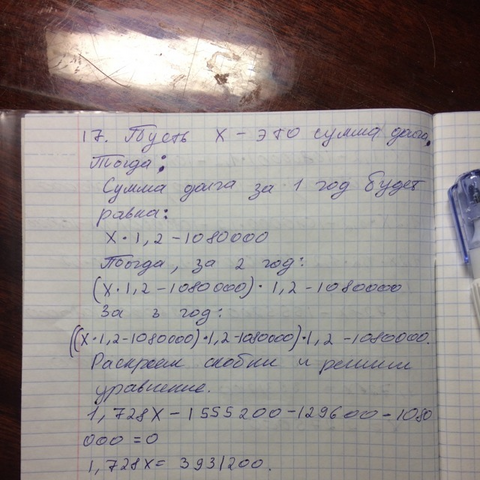 17. Пусть х – это сумма долга.
Тогда:
Сумма долга за 1 год будет
равна:
х·1,2 – 1080000
Тогда, за 2 год:
(х·1,2 – 1080000)·1,2 – 1080000
За 3 год:
((х·1,2 – 1080000)·1,2 – 1080000)·1,2 – 1080000.
Раскроем скобки и решим
уравнение.
1,728х – 1555200 – 129600 – 1080
000 = 0
1,728х = 3931200.